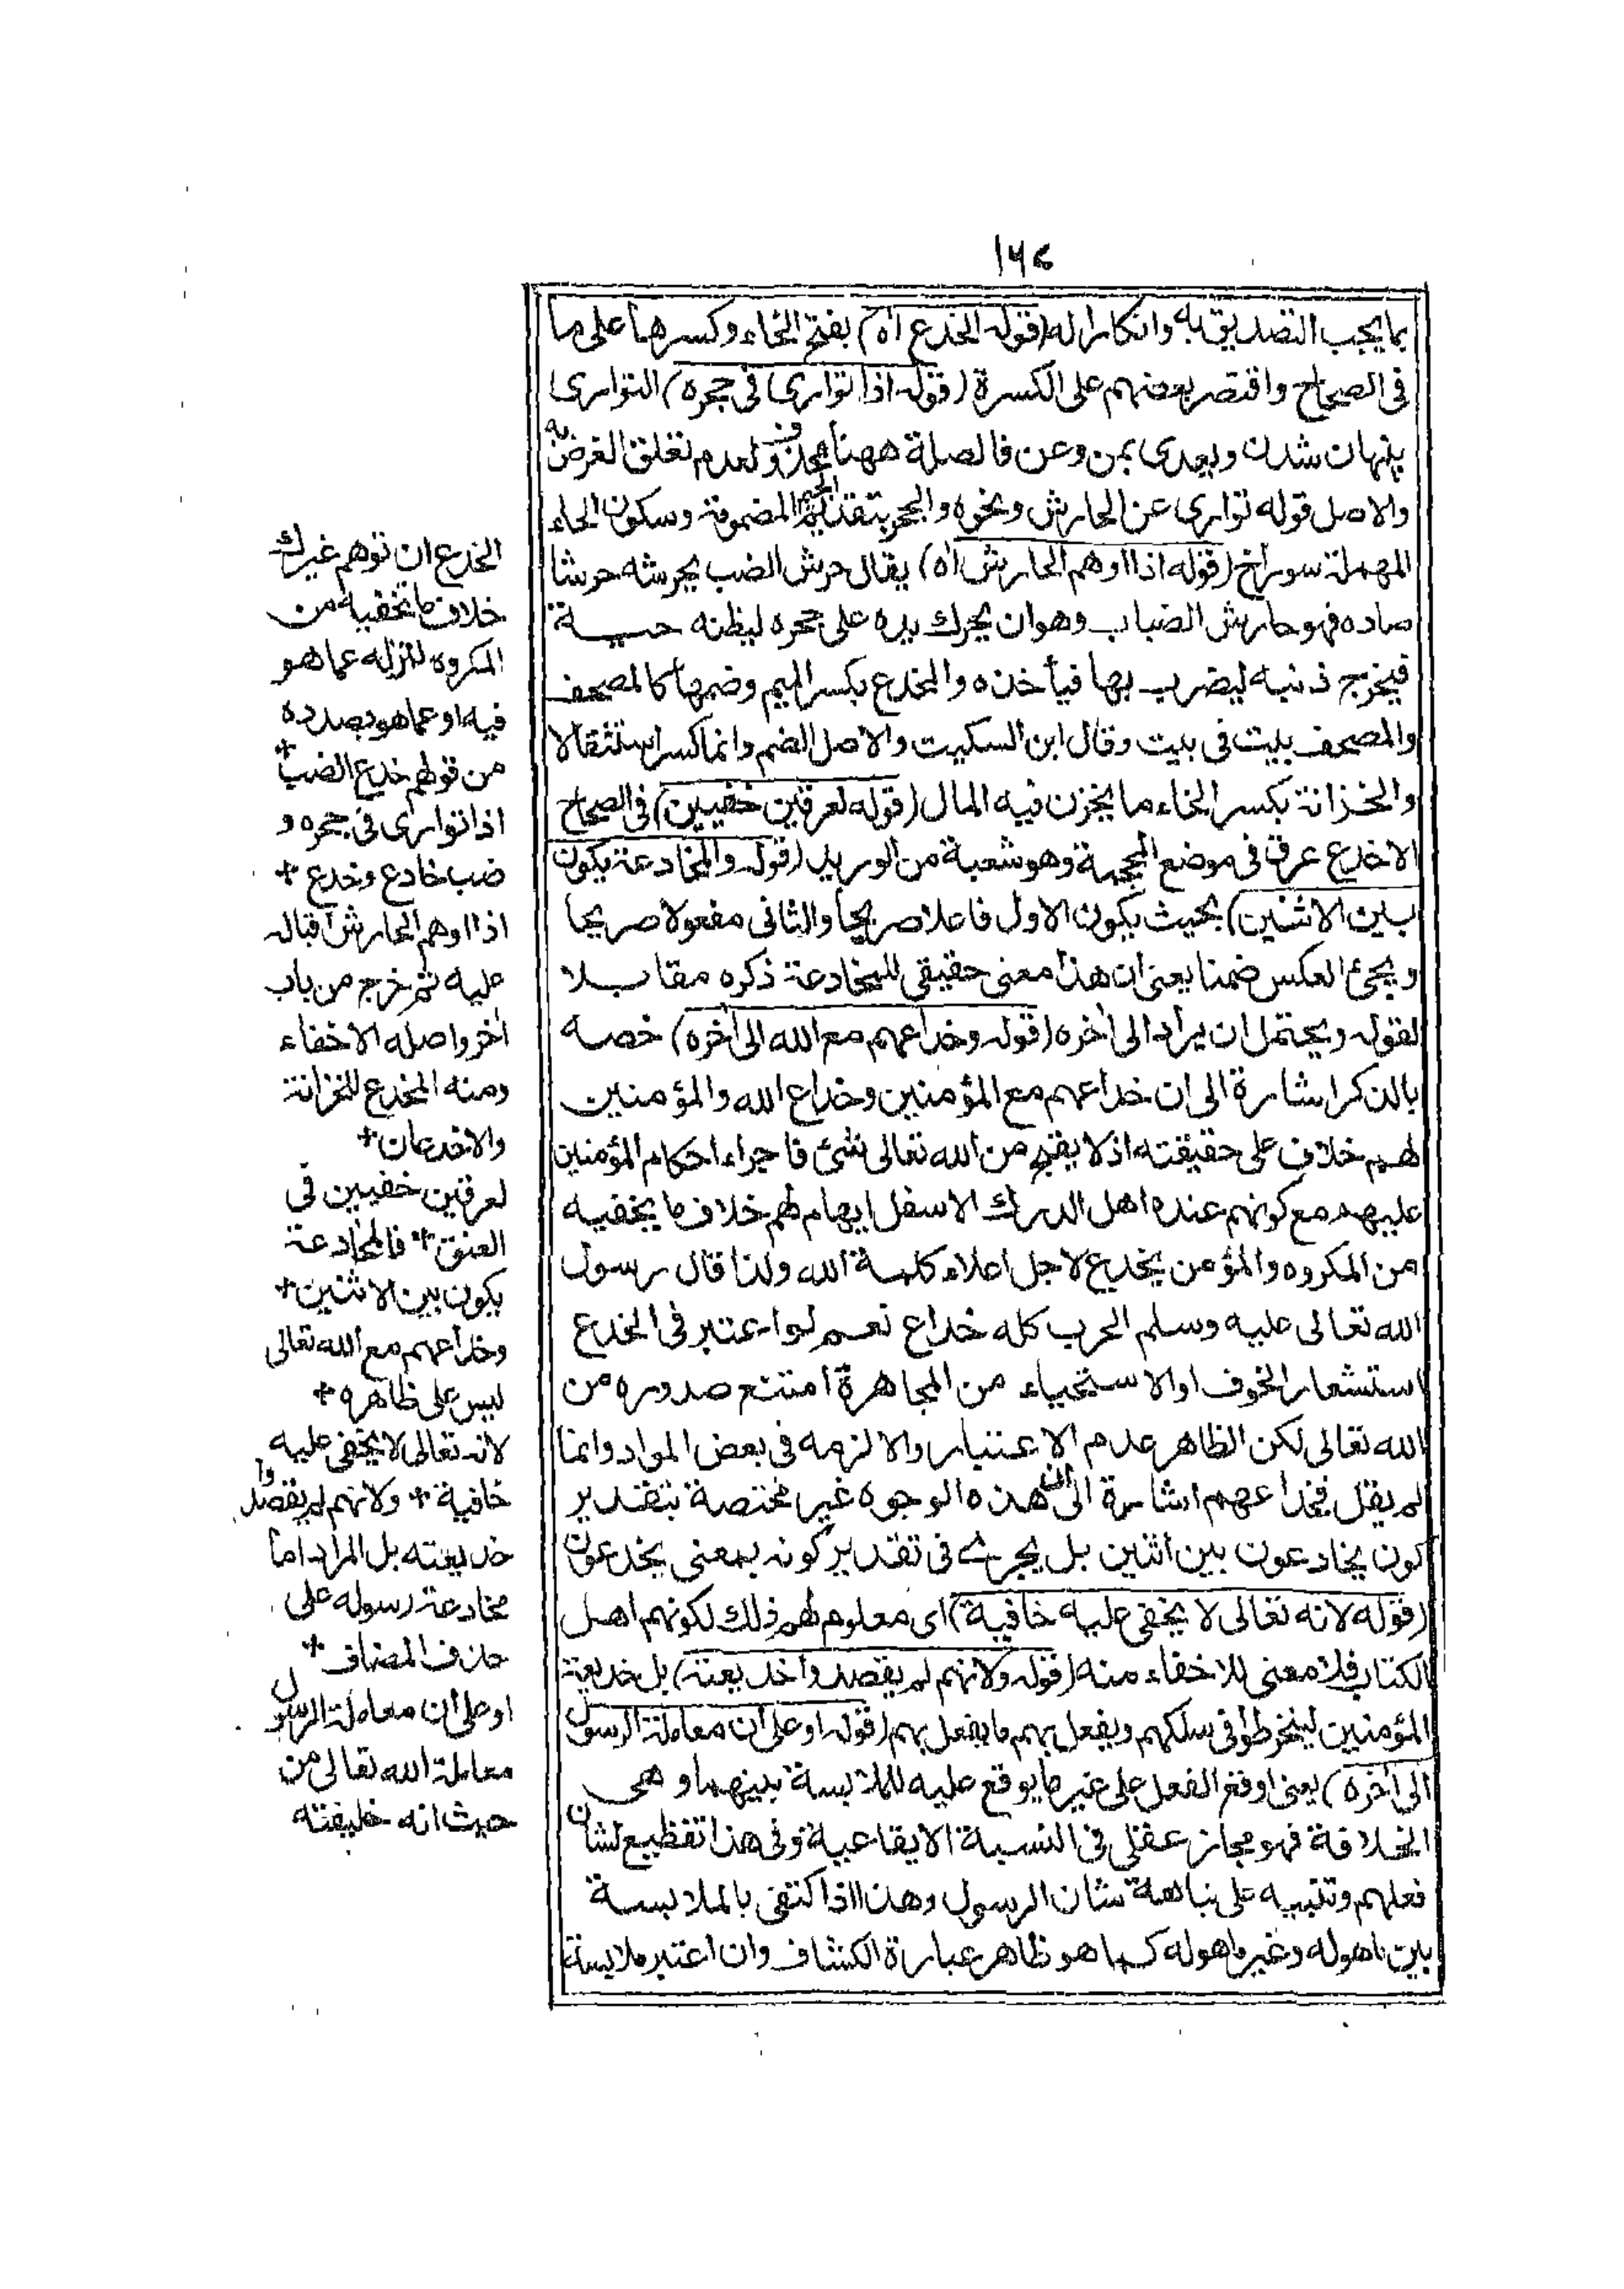 ۱۶۴
بما يجب التصديق به وانكارا له (قوله الخدع اه) بفتح الخاء وكسرها على ما
فى الصحاح واقتصر بعضهم على الكسرة (قوله اذا توارى فى جحره) التوارى
پنهان شدن ويعدى بمن وعن فالصلة ههنا محذوف لعدم تعلق الغرض به
والاصل قوله توارى عن الحارش ونحوه والجحر بتقديم الجيم المضمومة وسكون الحاء
المهملة سوراخ (قوله اذا اوهم الحارش اه) يقال حرش الضب يحرشه حرشا
صاده فهو حارش الضباب وهو ان يحرك يده على جحره ليظنه حية
فيخرج ذنبه ليضرب بها فيأخذه والمخدع بكسر الميم وضمها كالمصحف
والمصحف بيت فى بيت وقال ابن السكيت والاصل الضم وانما كسر استثقالا
والخزانة بكسر الخاء ما يخزن فيه المال (قوله لعرقين خفيين) فى الصحاح
الاخدع عرق فى موضع المحجمة وهو شعبة من الوريد (قوله والمخادعة يكون
بين الاثنين) بحيث يكون الاول فاعلا صريحا والثانى مفعولا صريحا
ويجئ العكس ضمنا يعنى ان هذا معنى حقيقى للمخادعة ذكره مقابلا
لقوله ويحتمل ان يراد الى اخره (قوله وخداعهم مع الله الى اخره) خصه
بالذكر اشارة الى ان خداعهم مع المؤمنين وخداع الله والمؤمنين
لهم خلاف على حقيقته اذ لا يقبح من الله تعالى شئ فاجراء احكام المؤمنين
عليهم مع كونهم عنده اهل الدرك الاسفل ايهام لهم خلاف ما يخفيه
من المكروه والمؤمن يخدع لاجل اعلاء كلمة الله ولذا قال رسول
الله تعالى عليه وسلم الحرب كله خداع نعم لو اعتبر فى الخدع
استشعار الخوف او الاستحياء من المجاهرة امتنع صدوره من
الله تعالى لكن الظاهر عدم الاعتبار والا لزمه فى بعض المواد وانما
لم يقل فخداعهم اشارة الى ان هذه الوجوه غير مختصة بتقدير
كون يخادعون بين اثنين بل يجرے فى تقدير كونه بمعنى يخدعون
(قوله لانه تعالى لا يخفى عليه خافية) اى معلوم لهم ذلك لكونهم اهل
الكتاب فلا معنى للاخفاء منه (قوله ولانهم لم يقصدوا خديعته) بل خديعة
المؤمنين لينخرطوا فى سلكهم ويفعل بهم ما يفعل بهم (قوله او على ان معاملة الرسول
الى اخره) يعنى اوقع الفعل على غير ما يوقع عليه للملابسة بينهما وهى
الخلافة فهو مجاز عقلى فى النسبة الايقاعية وفى هذا تفظيع لشان
فعلهم وتنبيه على نباهة شان الرسول وهذا اذا اكتفى بالملابسة
بين ما هو له وغير ما هو له كما هو ظاهر عبارة الكشاف وان اعتبر ملابسة
الخدع ان توهم غيرك
خلاف ما تخفيه من
المكروه لتزله عما هو
فيه او عما هو بصدده
من قولهم خدع الضب +
اذا توارى فى جحره و
ضب خادع وخدع +
اذا اوهم الحارش اقباله
عليه ثم خرج من باب
اخر واصله الاخفاء
ومنه المخدع للخزانة
والاخدعان +
لعرقين خفيين فى
العنق + فالمخادعة
يكون بين الاثنين +
وخداعهم مع الله تعالى
ليس على ظاهره +
لانه تعالى لا يخفى عليه
خافية + ولانهم لم يقصدوا
خديعته بل المراد اما
مخادعة رسوله على
حذف المضاف +
او على ان معاملة الرسول
معاملة الله تعالى من
حيث انه خليفته